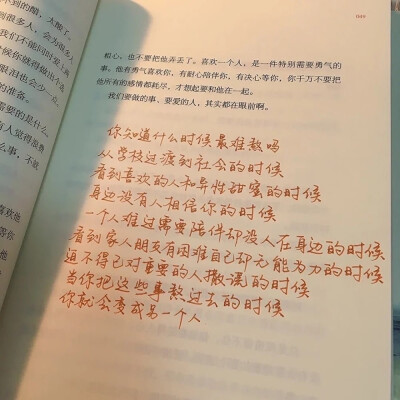 我们不能同时爱上两
眼泪也会少一点。
的准备。
需要的是什么。
有人觉得浪费
么事，不能
喜欢他
粗心，也不要把他弄丢了。喜欢一个人，是一件特别需要勇气的
事。他有勇气喜欢你，有耐心陪伴你，有决心等你，你千万不要把
他所有的感情都耗尽，才想起要和他在一起。
我们要做的事、要爱的人，其实都在眼前啊。
你知道什么时候最难熬吗
从学校过渡到社会的时候
看到喜欢的人和异性甜蜜的时候
身边没有人相信你的时候
一个人难过需要陪伴却没人在身边的时候
看到家人朋友有困难自己却无能为力的时候
迫不得已对重要的人撒谎的时候
当你把这些事熬过去的时候
你就会变成另一个人